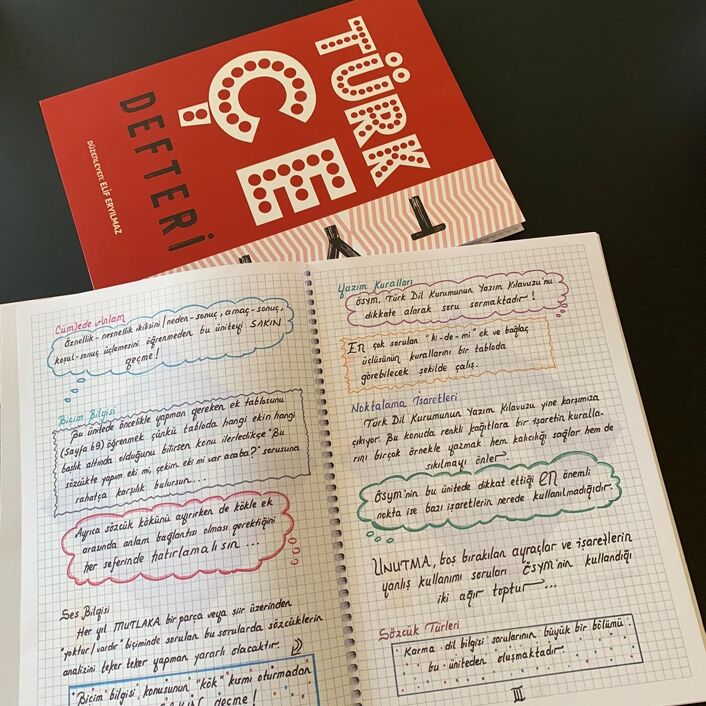 TÜRK
ÇE
DEFTERİ
DÜZENLEYEN: ELİF ERYILMAZ
TY
Cümlede Anlam
Öznellik - nesnellik ikilisini / neden-sonuç, amaç-sonuç,
koşul-sonuç üçlemesini öğrenmeden bu üniteyi SAKIN
geçme!
Biçim Bilgisi
Bu ünitede öncelikle yapman gereken ek tablosunu
(Sayfa 69) öğrenmek çünkü tabloda hangi ekin hangi
başlık altında olduğunu bilirsen konu ilerledikçe "Bu
sözcükte yapım eki mi, çekim eki mi var acaba?" sorusuna
rahatça karşılık bulursun...
Ayrıca sözcük kökünü ayırırken de kökle ek
arasında anlam bağlantısı olması gerektiğini
her seferinde hatırlamalısın ...
Ses Bilgisi
Her yıl MUTLAKA bir parça veya şiir üzerinden
"yoktur / vardır" biçiminde sorulan bu sorularda sözcüklerin
analizini teker teker yapman yararlı olacaktır.
Biçim bilgisi konusunun "kök" kısmı oturmadan
geçme!
Yazım Kuralları
ÖSYM, Türk Dil Kurumunun Yazım Kılavuzu'nu
dikkate alarak soru sormaktadır!
EN çok sorulan "ki-de-mi" ek ve bağlaç
üçlüsünün kurallarını bir tabloda
görebilecek şekilde çalış.
Noktalama İşaretleri
Türk Dil Kurumunun Yazım Kılavuzu yine karşımıza
çıkıyor. Bu konuda renkli kağıtlara bir işaretin kuralla-
rını birçok örnekle yazmak hem kalıcılığı sağlar hem de
sıkılmayı önler.
ÖSYM'nin bu ünitede dikkat ettiği EN önemli
nokta ise bazı işaretlerin nerede kullanılmadığıdır.
UNUTMA, boş bırakılan ayraçlar ve işaretlerin
yanlış kullanımı soruları ÖSYM'nin kullandığı
iki ağır toptur...
Sözcük Türleri
Karma dil bilgisi sorularının büyük bir bölümü
bu üniteden oluşmaktadır.
III